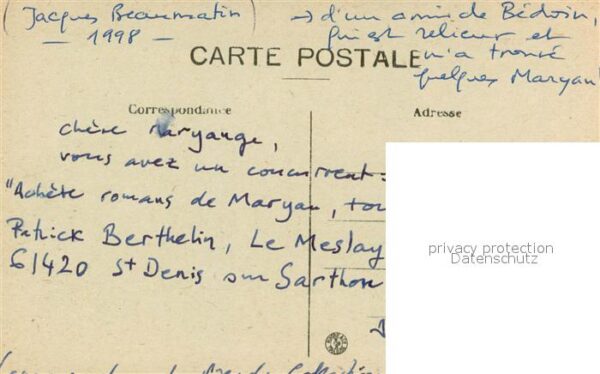 (Jacques Beaumatin)
- 1998 -
→ d'un ami de Bédoin,
qui est relieur et
m'a trouvé
quelques Maryan
CARTE POSTALE
Correspondance
Adresse
chère Maryange,
vous avez un concurrent :
"Achète romans de Maryan, tou
Patrick Berthelin, Le Meslay
61420 St Denis sur Sarthon
privacy protection
Datenschutz